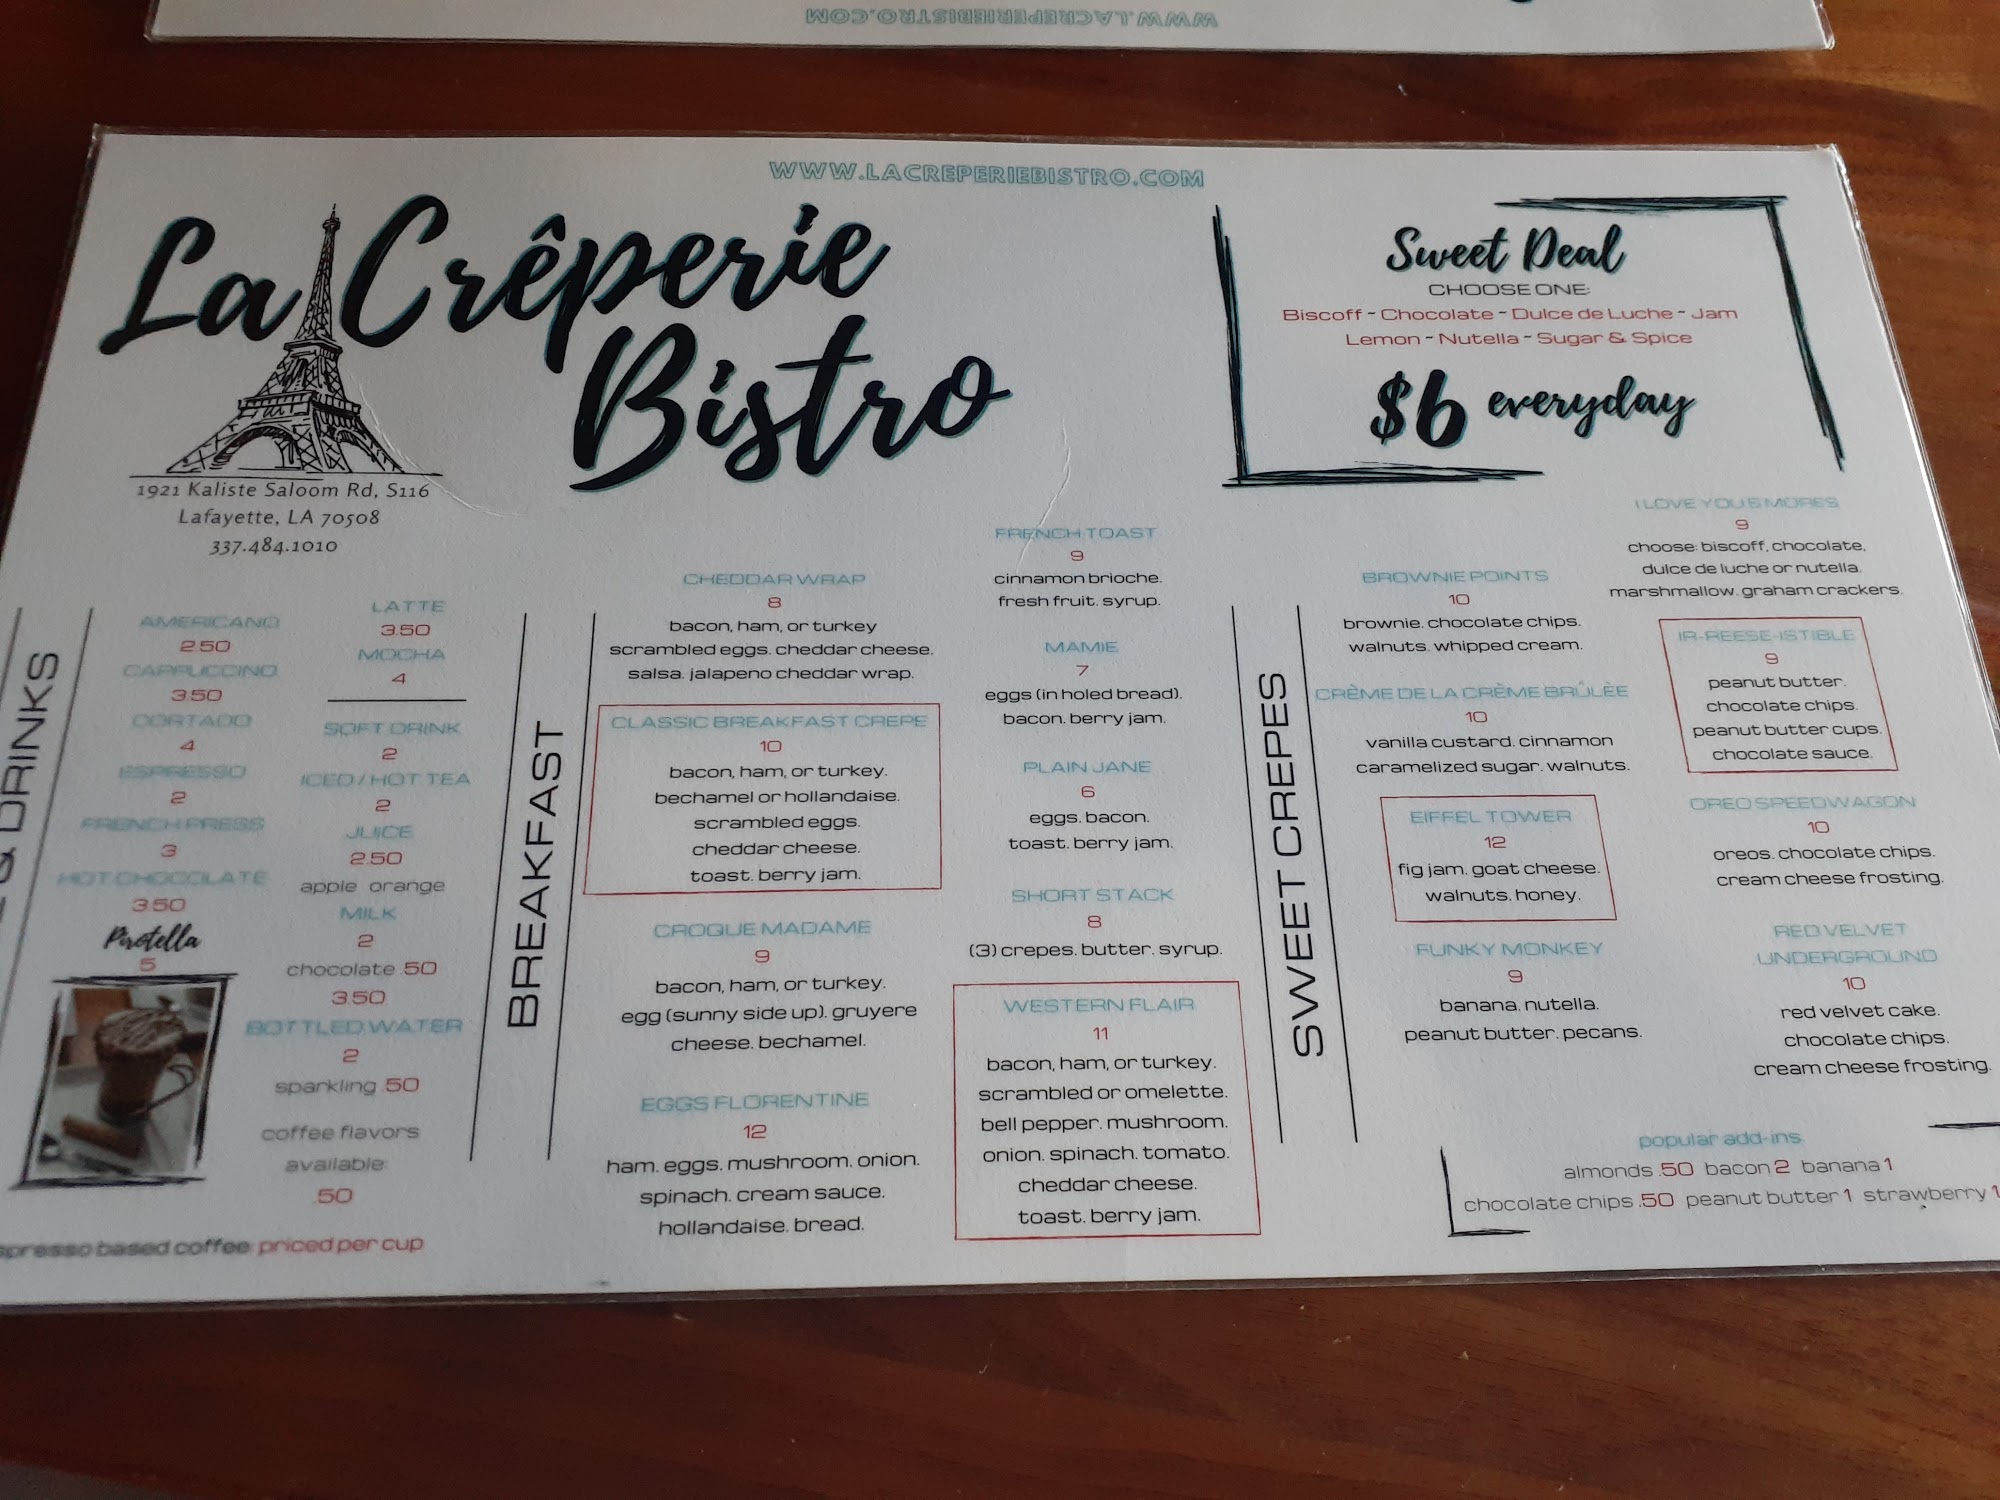 WWW.LACREPERIEBISTRO.COM
WWW.LACREPERIEBISTRO.COM
La Crêperie
Bistro
1921 Kaliste Saloom Rd, S116
Lafayette, LA 70508
337.484.1010
Sweet Deal
CHOOSE ONE:
Biscoff ~ Chocolate ~ Dulce de Luche ~ Jam
Lemon ~ Nutella ~ Sugar & Spice
$6 everyday
& DRINKS
AMERICANO
2.50
CAPPUCCINO
3.50
CORTADO
4
ESPRESSO
2
FRENCH PRESS
3
HOT CHOCOLATE
3.50
Pirotella
5
LATTE
3.50
MOCHA
4
SOFT DRINK
2
ICED / HOT TEA
2
JUICE
2.50
apple orange
MILK
2
chocolate .50
3.50
BOTTLED WATER
2
sparkling .50
coffee flavors
available:
.50
based coffee priced per cup
BREAKFAST
CHEDDAR WRAP
8
bacon, ham, or turkey
scrambled eggs. cheddar cheese.
salsa. jalapeno cheddar wrap.
CLASSIC BREAKFAST CREPE
10
bacon, ham, or turkey.
bechamel or hollandaise.
scrambled eggs.
cheddar cheese.
toast. berry jam.
CROQUE MADAME
9
bacon, ham, or turkey.
egg (sunny side up). gruyere
cheese. bechamel.
EGGS FLORENTINE
12
ham. eggs. mushroom. onion.
spinach. cream sauce.
hollandaise. bread.
FRENCH TOAST
9
cinnamon brioche.
fresh fruit. syrup.
MAMIE
7
eggs (in holed bread).
bacon. berry jam.
PLAIN JANE
6
eggs. bacon.
toast. berry jam.
SHORT STACK
8
(3) crepes. butter. syrup.
WESTERN FLAIR
11
bacon, ham, or turkey.
scrambled or omelette.
bell pepper. mushroom.
onion. spinach. tomato.
cheddar cheese.
toast. berry jam.
SWEET CREPES
BROWNIE POINTS
10
brownie. chocolate chips.
walnuts. whipped cream.
CRÈME DE LA CRÈME BRÛLÈE
10
vanilla custard. cinnamon
caramelized sugar. walnuts.
EIFFEL TOWER
12
fig jam. goat cheese.
walnuts. honey.
FUNKY MONKEY
9
banana. nutella.
peanut butter. pecans.
I LOVE YOU S'MORES
9
choose: biscoff, chocolate,
dulce de luche or nutella.
marshmallow. graham crackers.
IR-REESE-ISTIBLE
9
peanut butter.
chocolate chips.
peanut butter cups.
chocolate sauce.
OREO SPEEDWAGON
10
oreos. chocolate chips.
cream cheese frosting.
RED VELVET
UNDERGROUND
10
red velvet cake.
chocolate chips.
cream cheese frosting.
popular add-ins
almonds .50 bacon 2 banana 1
chocolate chips .50 peanut butter 1 strawberry 1